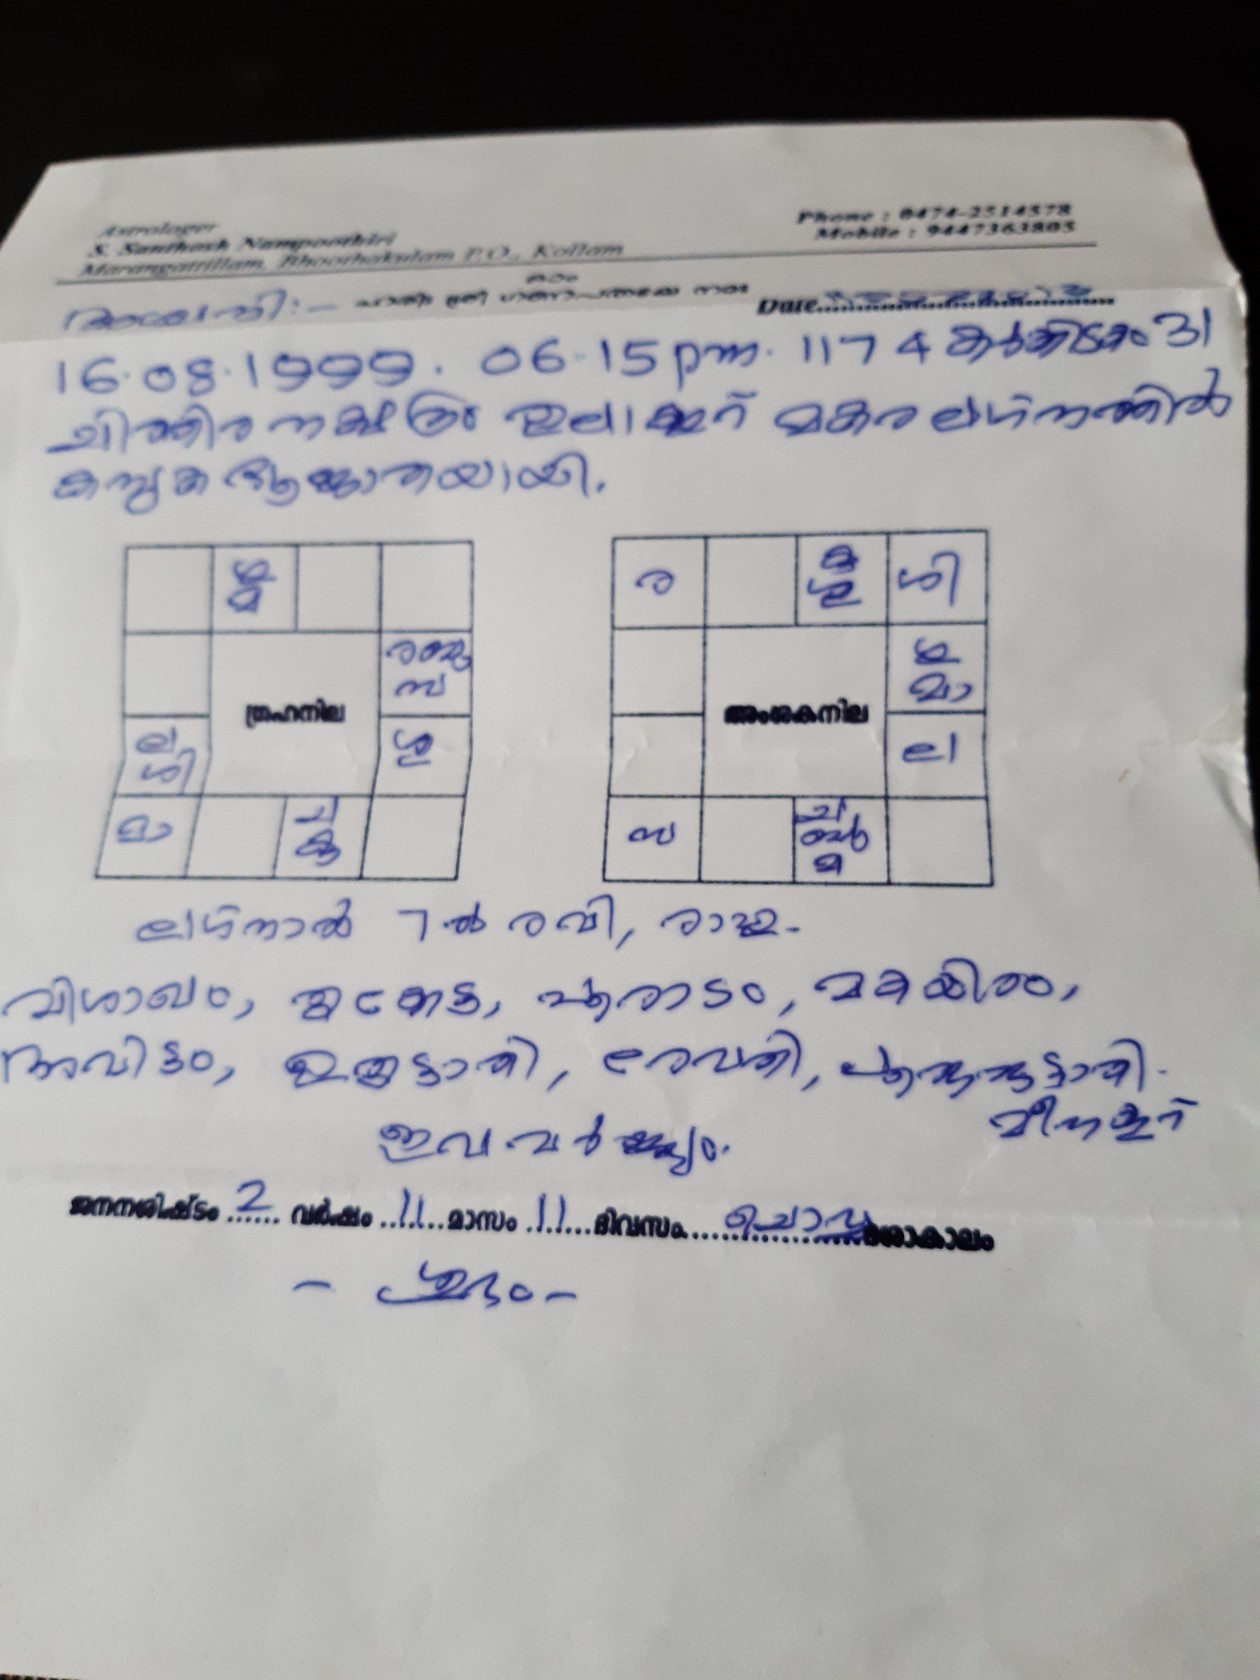 Astrologer
S. Santhosh Nampoothiri
Marangattillam, Bhoothakulam P.O., Kollam
Phone : 0474-2514578
Mobile : 9447363805
ഹരിഃ ശ്രീ ഗണപതയെ നമഃ
Date
16.08.1999. 06-15 pm. 1174 കർക്കിടകം 31
ചിത്തിര നക്ഷത്രം തുലാക്കൂറ് മകര ലഗ്നത്തിൽ
കന്യക ആജാതയായി.
ശ മ
ര ബു
സ
ല
ശി
ശു
മാ
ച
കു
ഗ്രഹനില
ര
കു
ശു
ശി
ശ
മാ
ല
സ
ച
ബു
മ
അംശകനില
ലഗ്നാൽ 7 ൽ രവി, രാഹു.
വിശാഖം, തൃക്കേട്ട, പൂരാടം, മകയിരം,
അവിട്ടം, ഉതൃട്ടാതി, രേവതി, പൂരുരുട്ടാതി
മീനക്കൂറ്
ഇവ വർജ്ജ്യം.
ജനനശിഷ്ടം 2 വർഷം 11 മാസം 11 ദിവസം ചൊവ്വ ദശാകാലം
- ശുഭം -